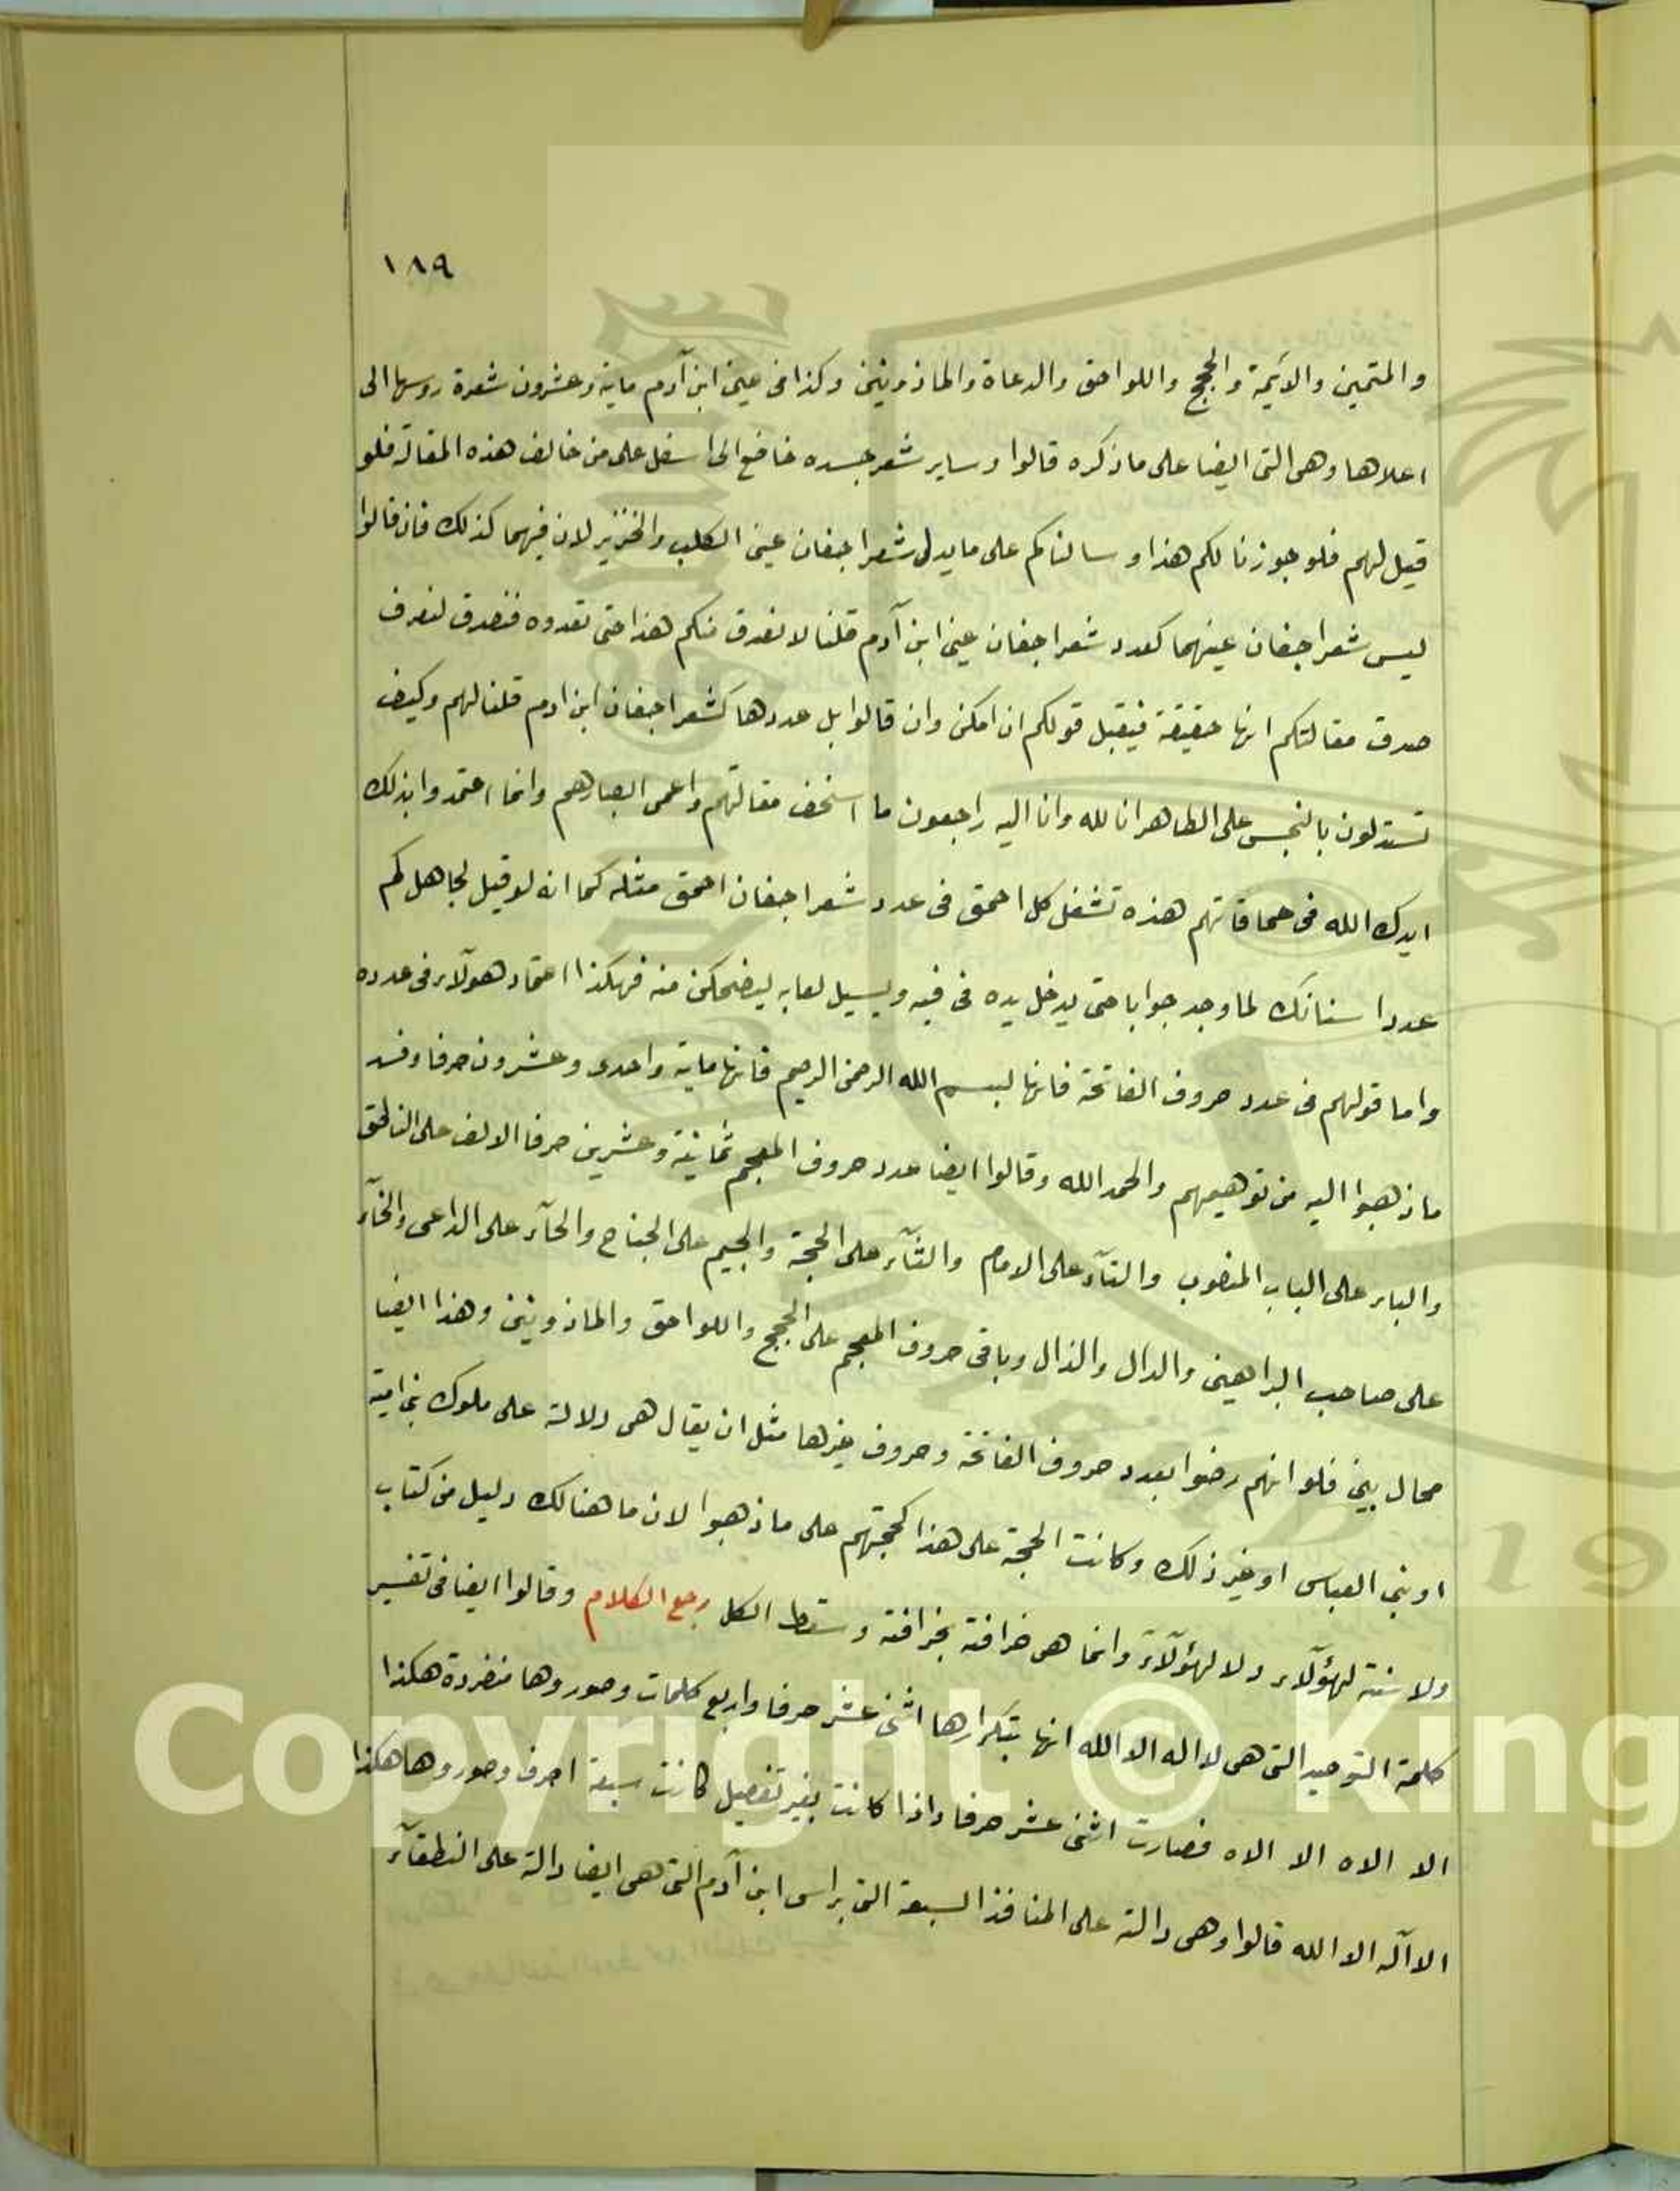 ١٨٩
والمتمين والايمة والحجج واللواحق والدعاة والماذونين وكذا فى عين ابن آدم ماية وعشرون شعرة روسها الى
اعلاها وهى التى ايضا على ما ذكره قالوا وساير شعر جسده خاضع الى اسفل على من خالف هذه المقالة فلو
قيل لهم فلو جوزنا لكم هذا وسالناكم على ما يدل شعر اجفان عين الكلب والخنزير لان فيهما كذلك فان قالوا
ليس شعر اجفان عينهما كعدد شعر اجفان عين ابن آدم قلنا لا نصدق منكم هذا حتى تعدوه فنصدق لنعرف
صدق مقالتكم انها حقيقة فيقبل قولكم ان امكن وان قالوا بل عددها كشعر اجفان ابن ادم قلنا لهم وكيف
تستدلون بالنجس على الطاهر انا لله وانا اليه راجعون ما اسخف مقالتهم واعمى ابصارهم وانما اعتمدوا بذلك
ايدك الله فى حماقاتهم هذه تشغل كل احمق فى عدد شعر اجفان احمق مثله كما انه لو قيل لجاهل كم
عدد اسنانك لما وجد جوابا حتى يدخل يده فى فيه ويسيل لعابه ليضحكن منه فهكذا اعتماد هولآء فى عدده
واما قولهم فى عدد حروف الفاتحة فانها لبسم الله الرحمن الرحيم فانها ماية واحدى وعشرون حرفا وفسد
ما ذهبوا اليه من توهيمهم والحمد الله وقالوا ايضا عدد حروف المعجم ثمانية وعشرين حرفا الالف على الناطق
والباء على الباب المنصوب والتآء على الامام والثآء على الحجة والجيم على الجناح والحآء على الداعى والخآء
على صاحب البراهين والدال والذال وباقى حروف المعجم على الحجج واللواحق والماذونين وهذا ايضا
محال بين فلو انهم رضوا بعدد حروف الفاتحة وحروف غيرها مثل ان يقال هى دلالة على ملوك بنى امية
او بنى العباس او غير ذلك وكانت الحجة على هذا كحجتهم على ما ذهبوا لان ما هنالك دليل من كتاب
ولا سنة لهؤلآء ولا لهؤلآء وانما هى خرافة بخرافة وسقط الكل رجع الكلام وقالوا ايضا فى تفسير
كلمة التوحيد التى هى لا اله الا الله انها بتكرارها اثنى عشر حرفا واربع كلمات وصوروها منفردة هكذا
الا الاه الا الاه فصارت اثنى عشر حرفا واذا كانت بغير تفصيل كانت سبعة احرف وصوروها هكذا
الا آله الا الله قالوا وهى دالة على المنافذ السبعة التى براس ابن آدم التى هى ايضا دالة على النطقآء
Copyright © King